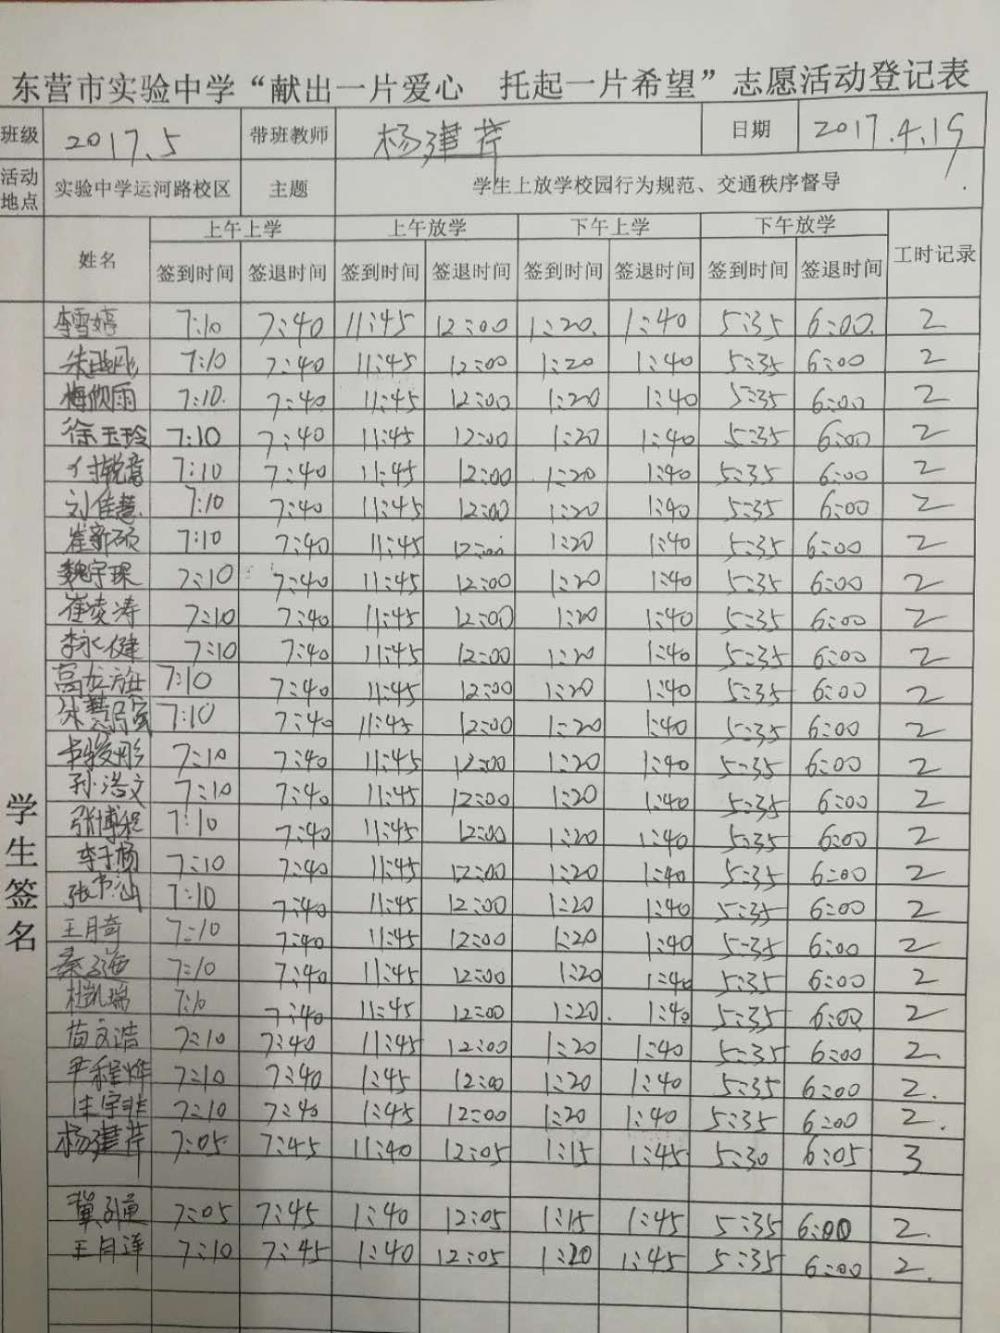 东营市实验中学“献出一片爱心 托起一片希望”志愿活动登记表
班级 2017.5 带班教师 杨建芹 日期 2017.4.19
活动地点 实验中学运河路校区 主题 学生上放学校园行为规范、交通秩序督导
学生签名
姓名 上午上学 上午放学 下午上学 下午放学 工时记录
签到时间 签退时间 签到时间 签退时间 签到时间 签退时间 签到时间 签退时间
李雪婷 7:10 7:40 11:45 12:00 1:20. 1:40 5:35 6:00. 2
7:10 7:40 11:45 12:00 1:20 1:40 5:35 6:00 2
梅欣雨 7:10. 7:40 11:45 12:00 1:20 1:40 5:35 6:00 2
徐玉玲 7:10 7:40 11:45 12:00 1:20 1:40 5:35 6:00 2
付锐意 7:10 7:40 11:45 12:00 1:20 1:40 5:35 6:00 2
刘佳慧 7:10 7:40 11:45 12:00 1:20 1:40 5:35 6:00 2
崔新硕 7:10 7:40 11:45 12:00 1:20 1:40 5:35 6:00 2
魏宇琛 7:10 7:40 11:45 12:00 1:20 1:40 5:35 6:00 2
崔凌涛 7:10 7:40 11:45 12:00 1:20 1:40 5:35 6:00 2
李永健 7:10 7:40 11:45 12:00 1:20 1:40 5:35 6:00 2
7:10 7:40 11:45 12:00 1:20 1:40 5:35 6:00 2
7:10 7:40 11:45 12:00 1:20 1:40 5:35 6:00 2
7:10 7:40 11:45 12:00 1:20 1:40 5:35 6:00 2
孙浩文 7:10 7:40 11:45 12:00 1:20 1:40 5:35 6:00 2
张博程 7:10 7:40 11:45 12:00 1:20 1:40 5:35 6:00 2
李子杨 7:10 7:40 11:45 12:00 1:20 1:40 5:35 6:00 2
张书汕 7:10 7:40 11:45 12:00 1:20 1:40 5:35 6:00 2
王月奇 7:10 7:40 11:45 12:00 1:20 1:40 5:35 6:00 2
7:10 7:40 11:45 12:00 1:20 1:40 5:35 6:00 2
杜凯瑞 7:10 7:40 11:45 12:00 1:20. 1:40 5:35 6:00 2
苗文浩 7:10 7:40 11:45 12:00 1:20 1:40 5:35 6:00 2.
严程烨 7:10 7:40 1:45 12:00 1:20 1:40 5:35 6:00 2.
宋宇菲 7:10 7:40 1:45 12:00 1:20 1:40 5:35 6:00 2.
杨建芹 7:05 7:45 11:40 12:05 1:15 1:45 5:30 6:05 3
7:05 7:45 1:40 12:05 1:15 1:45 5:35 6:00 2.
王月莲 7:10 7:45 1:40 12:05 1:20 1:45 5:35 6:00 2.